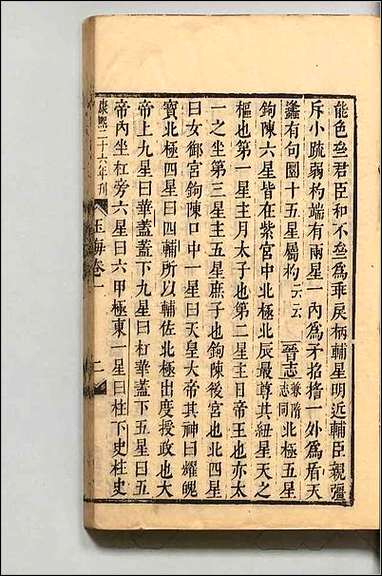 能色㕘君臣和不㕘爲乖戾柄輔星明近輔臣親彊
斥小疏弱杓端有兩星一內爲矛招搖一外爲盾天
蠭有句圜十五星屬杓云云晉志兼隋志同北極五星
鉤陳六星皆在紫宮中北極北辰最尊其紐星天之
樞也第一星主月太子也第二星主日帝王也亦太
一之坐第三星主五星庶子也鉤陳後宮也北四星
曰女御宮鉤陳口中一星曰天皇大帝其神曰耀魄
寶北極四星曰四輔所以輔佐北極出度授政也大
帝上九星曰華蓋蓋下九星曰杠華蓋下五星曰五
帝內坐杠旁六星曰六甲極東一星曰柱下史柱史
康熙二十六年刊 玉海卷一 二